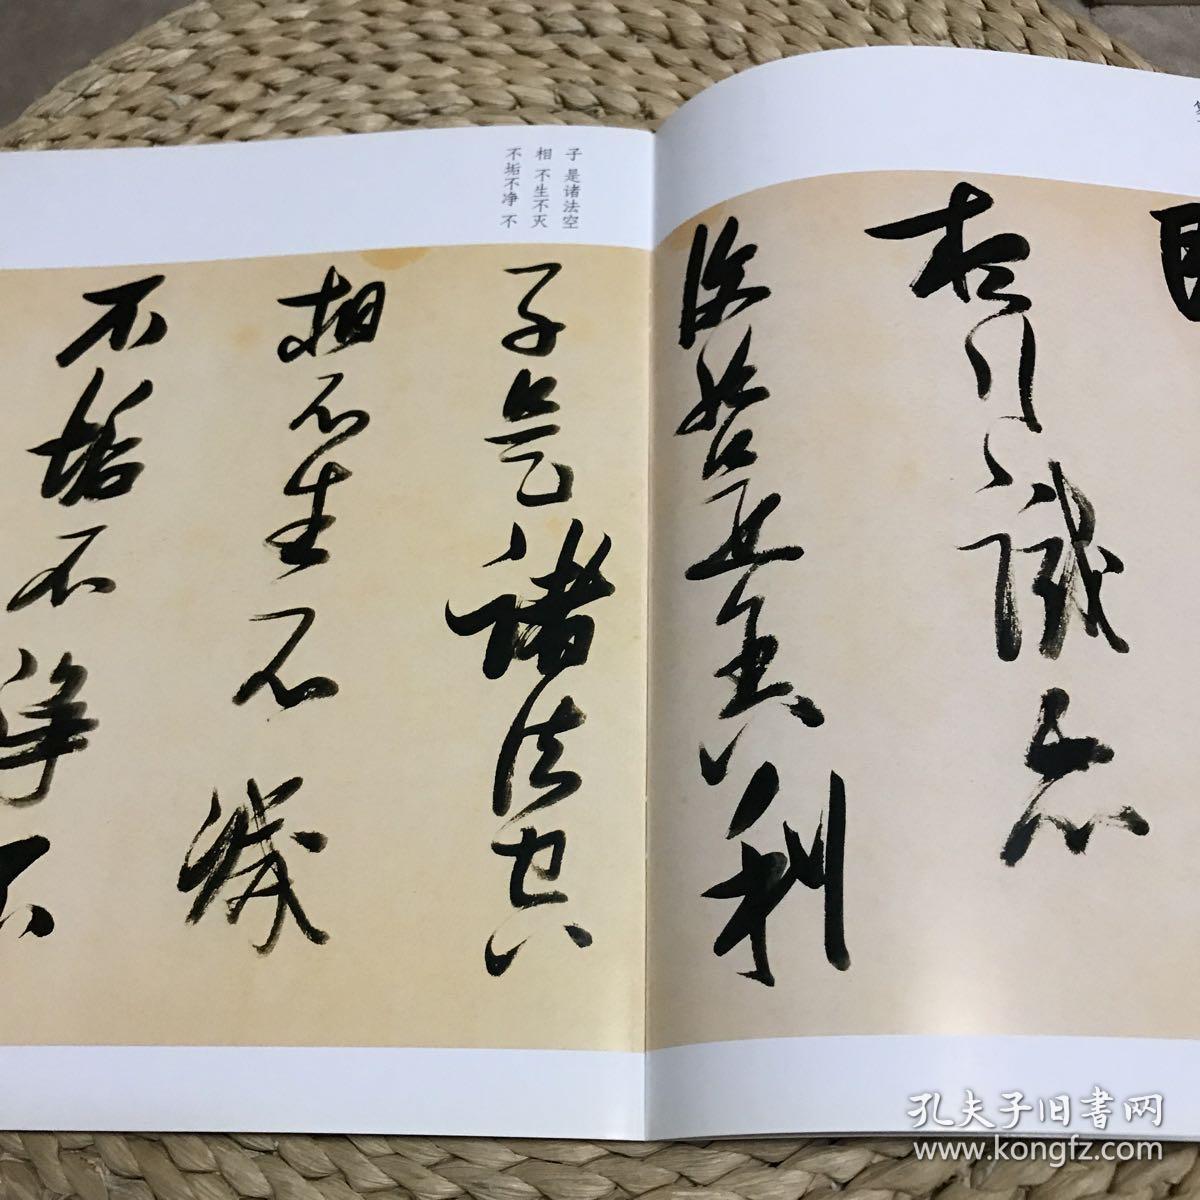 想行識亦
復如是舍利
子是諸法空
相不生不滅
不垢不淨不
子 是诸法空
相 不生不灭
不垢不净 不
孔夫子旧书网
www.kongfz.com